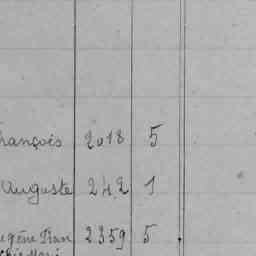 rançois 2018 5
Auguste 242 1
ugène Jean 2359 5